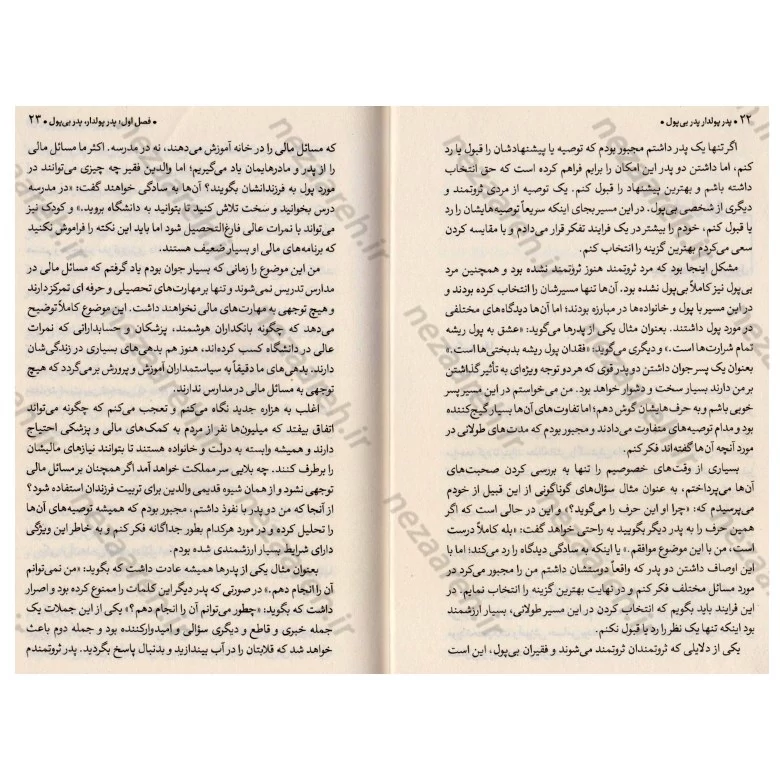 ۲۲ • پدر پولدار پدر بی‌پول •
اگر تنها یک پدر داشتم مجبور بودم که توصیه یا پیشنهادشان را قبول یا رد
کنم، اما داشتن دو پدر این امکان را برایم فراهم کرده است که حق انتخاب
داشته باشم و بهترین پیشنهاد را قبول کنم. یک توصیه از مردی ثروتمند و
دیگری از شخصی بی‌پول. در این مسیر بجای اینکه سریعاً توصیه‌هایشان را رد
یا قبول کنم، خودم را بیشتر در یک فرایند تفکر قرار می‌دادم و با مقایسه کردن
سعی می‌کردم بهترین گزینه را انتخاب کنم.
مشکل اینجا بود که مرد ثروتمند هنوز ثروتمند نشده بود و همچنین مرد
بی‌پول نیز کاملاً بی‌پول نشده بود. آن‌ها تنها مسیرشان را انتخاب کرده بودند و
در این مسیر با پول و خانواده‌ها در مبارزه بودند؛ اما آن‌ها دیدگاه‌های مختلفی
در مورد پول داشتند. بعنوان مثال یکی از پدرها می‌گوید: «عشق به پول ریشه
تمام شرارت‌ها است.» و دیگری می‌گوید: «فقدان پول ریشه بدبختی‌ها است.»
بعنوان یک پسر جوان داشتن دو پدر قوی که هر دو توجه ویژه‌ای به تأثیر گذاشتن
بر من دارند بسیار سخت و دشوار خواهد بود. من می‌خواستم در این مسیر پسر
خوبی باشم و به حرف‌هایشان گوش دهم؛ اما تفاوت‌های آن‌ها بسیار گیج‌کننده
بود و مدام توصیه‌های متفاوت می‌دادند و مجبور بودم که مدت‌های طولانی در
مورد آنچه آن‌ها گفته‌اند فکر کنم.
بسیاری از وقت‌های خصوصیم را تنها به بررسی کردن صحبت‌های
آن‌ها می‌پرداختم، به عنوان مثال سؤال‌های گوناگونی از این قبیل از خودم
می‌پرسیدم که: «چرا او این حرف را می‌گوید؟» و این در حالی است که اگر
همین حرف را به پدر دیگر بگویید به راحتی خواهد گفت: «بله کاملاً درست
است، من با این موضوع موافقم.» یا اینکه به سادگی دیدگاه را رد می‌کند؛ اما با
این اوصاف داشتن دو پدر که واقعاً دوستشان داشتم من را مجبور می‌کرد در
مورد مسائل مختلف فکر کنم و در نهایت بهترین گزینه را انتخاب نمایم. در
این فرایند باید بگویم که انتخاب کردن در این مسیر طولانی، بسیار ارزشمند
بود اینکه تنها یک نظر را رد یا قبول نکنم.
یکی از دلایلی که ثروتمندان ثروتمند می‌شوند و فقیران بی‌پول، این است
• فصل اول؛ پدر پولدار، پدر بی‌پول • ۲۳
که مسائل مالی را در خانه آموزش می‌دهند، نه در مدرسه. اکثر ما مسائل مالی
را از پدر و مادرهایمان یاد می‌گیریم؛ اما والدین فقیر چه چیزی می‌توانند در
مورد پول به فرزندانشان بگویند؟ آن‌ها به سادگی خواهند گفت: «در مدرسه
درس بخوانید و سخت تلاش کنید تا بتوانید به دانشگاه بروید.» و کودک نیز
می‌تواند با نمرات عالی فارغ‌التحصیل شود اما باید این نکته را فراموش نکنید
که برنامه‌های مالی او بسیار ضعیف هستند.
من این موضوع را زمانی که بسیار جوان بودم یاد گرفتم که مسائل مالی در
مدارس تدریس نمی‌شوند و تنها بر مهارت‌های تحصیلی و حرفه ای تمرکز دارند
و هیچ توجهی به مهارت‌های مالی نخواهند داشت. این موضوع کاملاً توضیح
می‌دهد که چگونه بانکداران هوشمند، پزشکان و حسابدارانی که نمرات
عالی در دانشگاه کسب کرده‌اند، هنوز هم بدهی‌های بسیاری در زندگی‌شان
دارند. بدهی‌های ما دقیقاً به سیاستمداران آموزش و پرورش برمی‌گردد که هیچ
توجهی به مسائل مالی در مدارس ندارند.
اغلب به هزاره جدید نگاه می‌کنم و تعجب می‌کنم که چگونه می‌تواند
اتفاق بیفتد که میلیون‌ها نفر از مردم به کمک‌های مالی و پزشکی احتیاج
دارند و همیشه وابسته به دولت و خانواده هستند تا بتوانند نیازهای مالیشان
را برطرف کنند. چه بلایی سر مملکت خواهد آمد اگر همچنان بر مسائل مالی
توجهی نشود و از همان شیوه قدیمی والدین برای تربیت فرزندان استفاده شود؟
از آنجا که من دو پدر با نفوذ داشتم، مجبور بودم که همیشه توصیه‌های آن‌ها
را تحلیل کرده و در مورد هرکدام بطور جداگانه فکر کنم و به خاطر این ویژگی
دارای شرایط بسیار ارزشمندی شده بودم.
بعنوان مثال یکی از پدرها همیشه عادت داشت که بگوید: «من نمی‌توانم
آن را انجام دهم.» در صورتی که پدر دیگر این کلمات را ممنوع کرده بود و اصرار
داشت که بگوید: «چطور می‌توانم آن را انجام دهم؟» یکی از این جملات یک
جمله خبری و قاطع و دیگری سؤالی و امیدوارکننده بود و جمله دوم باعث
خواهد شد که قلابتان را در آب بیندازید و بدنبال پاسخ بگردید. پدر ثروتمندم
nezaareh.ir